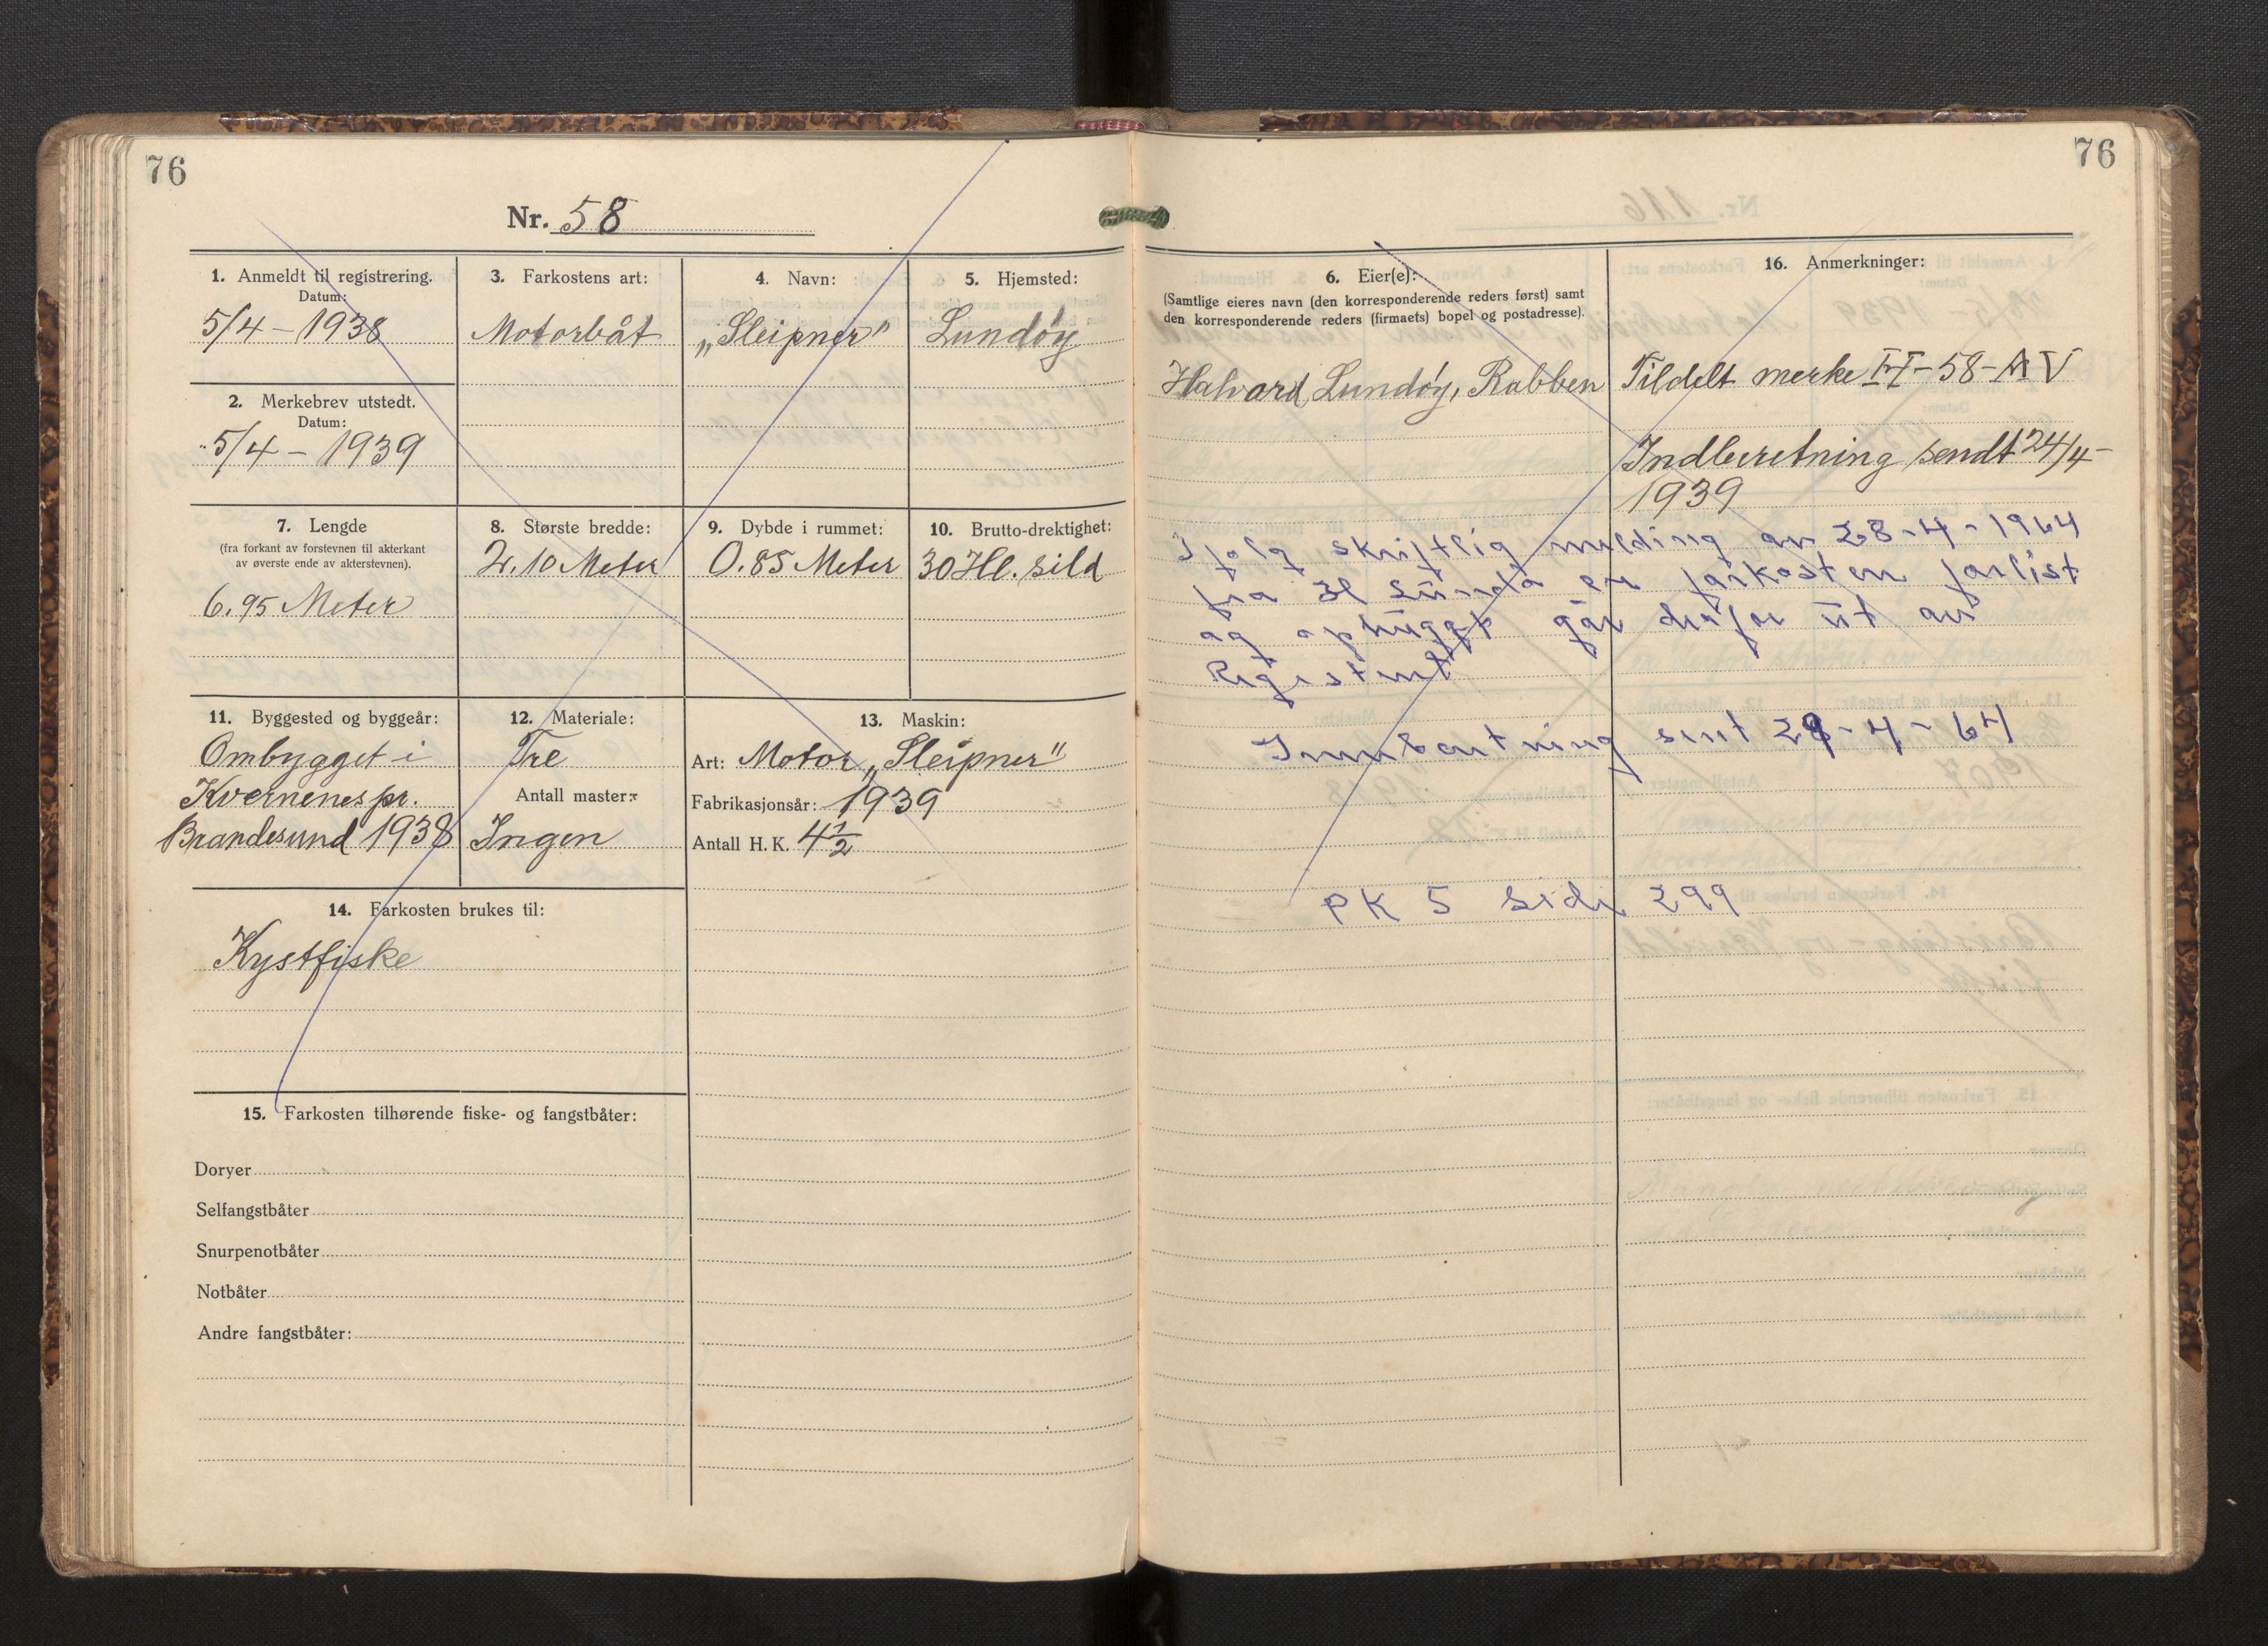 76
Nr. 58
1. Anmeldt til registrering.
Datum:
5/4 - 1938
2. Merkebrev utstedt.
Datum:
5/4 - 1939
3. Farkostens art:
Motorbåt
4. Navn:
„Sleipner"
5. Hjemsted:
Lundøy
7. Lengde
(fra forkant av forstevnen til akterkant
av øverste ende av akterstevnen).
6.95 Meter
8. Største bredde:
2.10 Meter
9. Dybde i rummet:
0.85 Meter
10. Brutto-drektighet:
30 Hl. sild
11. Byggested og byggeår:
Ombygget i
Kvernenes pr.
Brandesund 1938
12. Materiale:
Tre
Antall master:
Ingen
13. Maskin:
Art: Motor „Sleipner"
Fabrikasjonsår: 1939
Antall H. K. 4½
14. Farkosten brukes til:
Kystfiske
15. Farkosten tilhørende fiske- og fangstbåter:
Doryer
Selfangstbåter
Snurpenotbåter
Notbåter
Andre fangstbåter:
76
6. Eier(e):
(Samtlige eieres navn (den korresponderende reders først) samt
den korresponderende reders (firmaets) bopel og postadresse).
Halvard Lundøy, Rabben
16. Anmerkninger:
Tildelt merke -58-AV
Indberetning sendt 24/4-
1939
skriftlig melding av 28-4-1964
fra H Lunda er farkosten forlist
og ophugget går ut av
Registeret
sent 29-4-64
PK 5 side 299